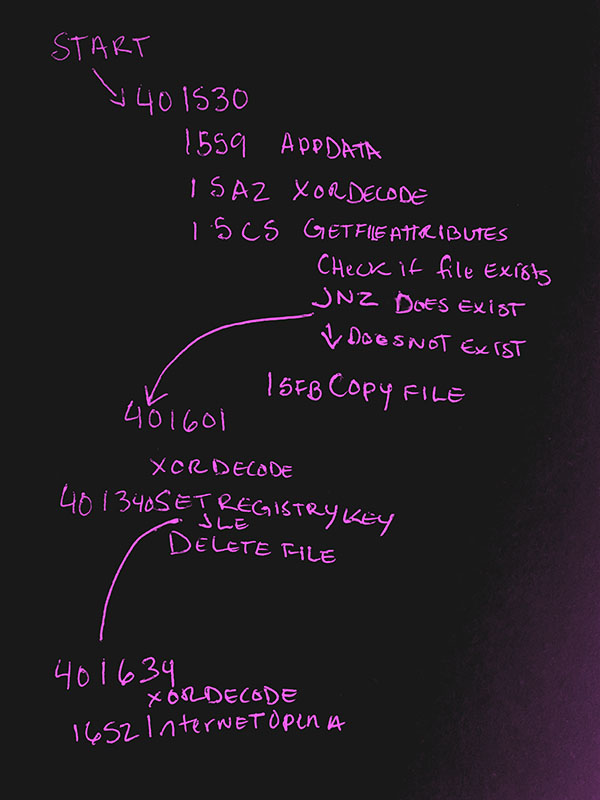 START
401530
1559 APPDATA
15A2 XORDECODE
15C5 GETFILEATTRIBUTES
CHECK if file EXISTS
JNZ DOES EXIST
↓ DOES NOT EXIST
15FB COPY FILE
401601
XORDECODE
401340 SET REGISTRY KEY
JLE
DELETE FILE
401634
XORDECODE
1652 InternetOpenA